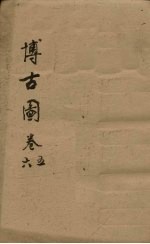 博古圖卷五六